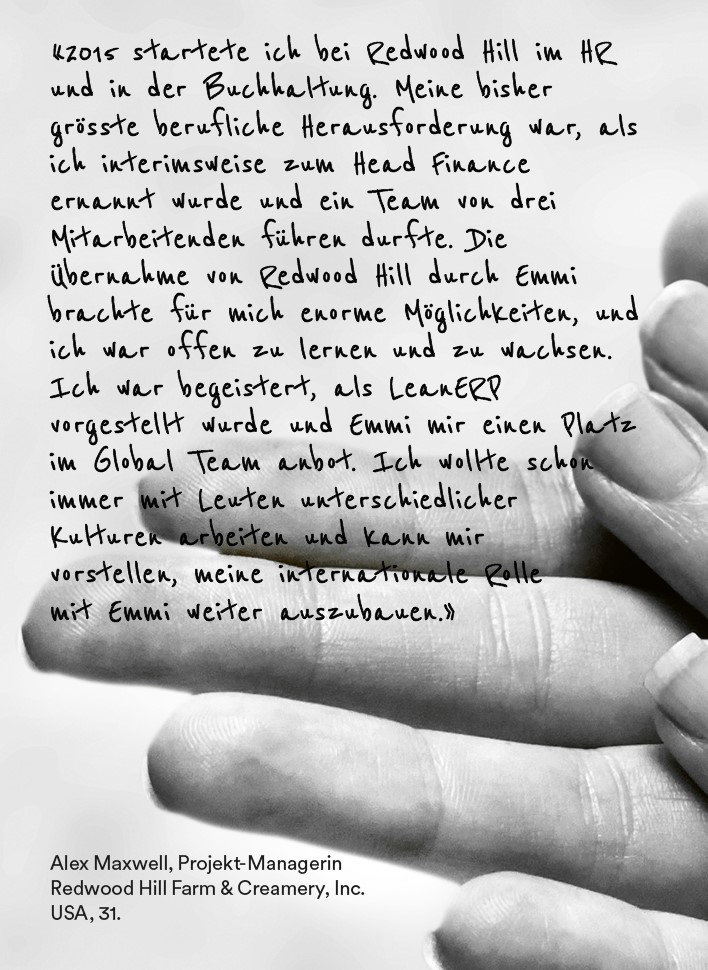 «2015 startete ich bei Redwood Hill im HR
und in der Buchhaltung. Meine bisher
grösste berufliche Herausforderung war, als
ich interimsweise zum Head Finance
ernannt wurde und ein Team von drei
Mitarbeitenden führen durfte. Die
Übernahme von Redwood Hill durch Emmi
brachte für mich enorme Möglichkeiten, und
ich war offen zu lernen und zu wachsen.
Ich war begeistert, als LeanERP
vorgestellt wurde und Emmi mir einen Platz
im Global Team anbot. Ich wollte schon
immer mit Leuten unterschiedlicher
Kulturen arbeiten und kann mir
vorstellen, meine internationale Rolle
mit Emmi weiter auszubauen.»
Alex Maxwell, Projekt-Managerin
Redwood Hill Farm & Creamery, Inc.
USA, 31.